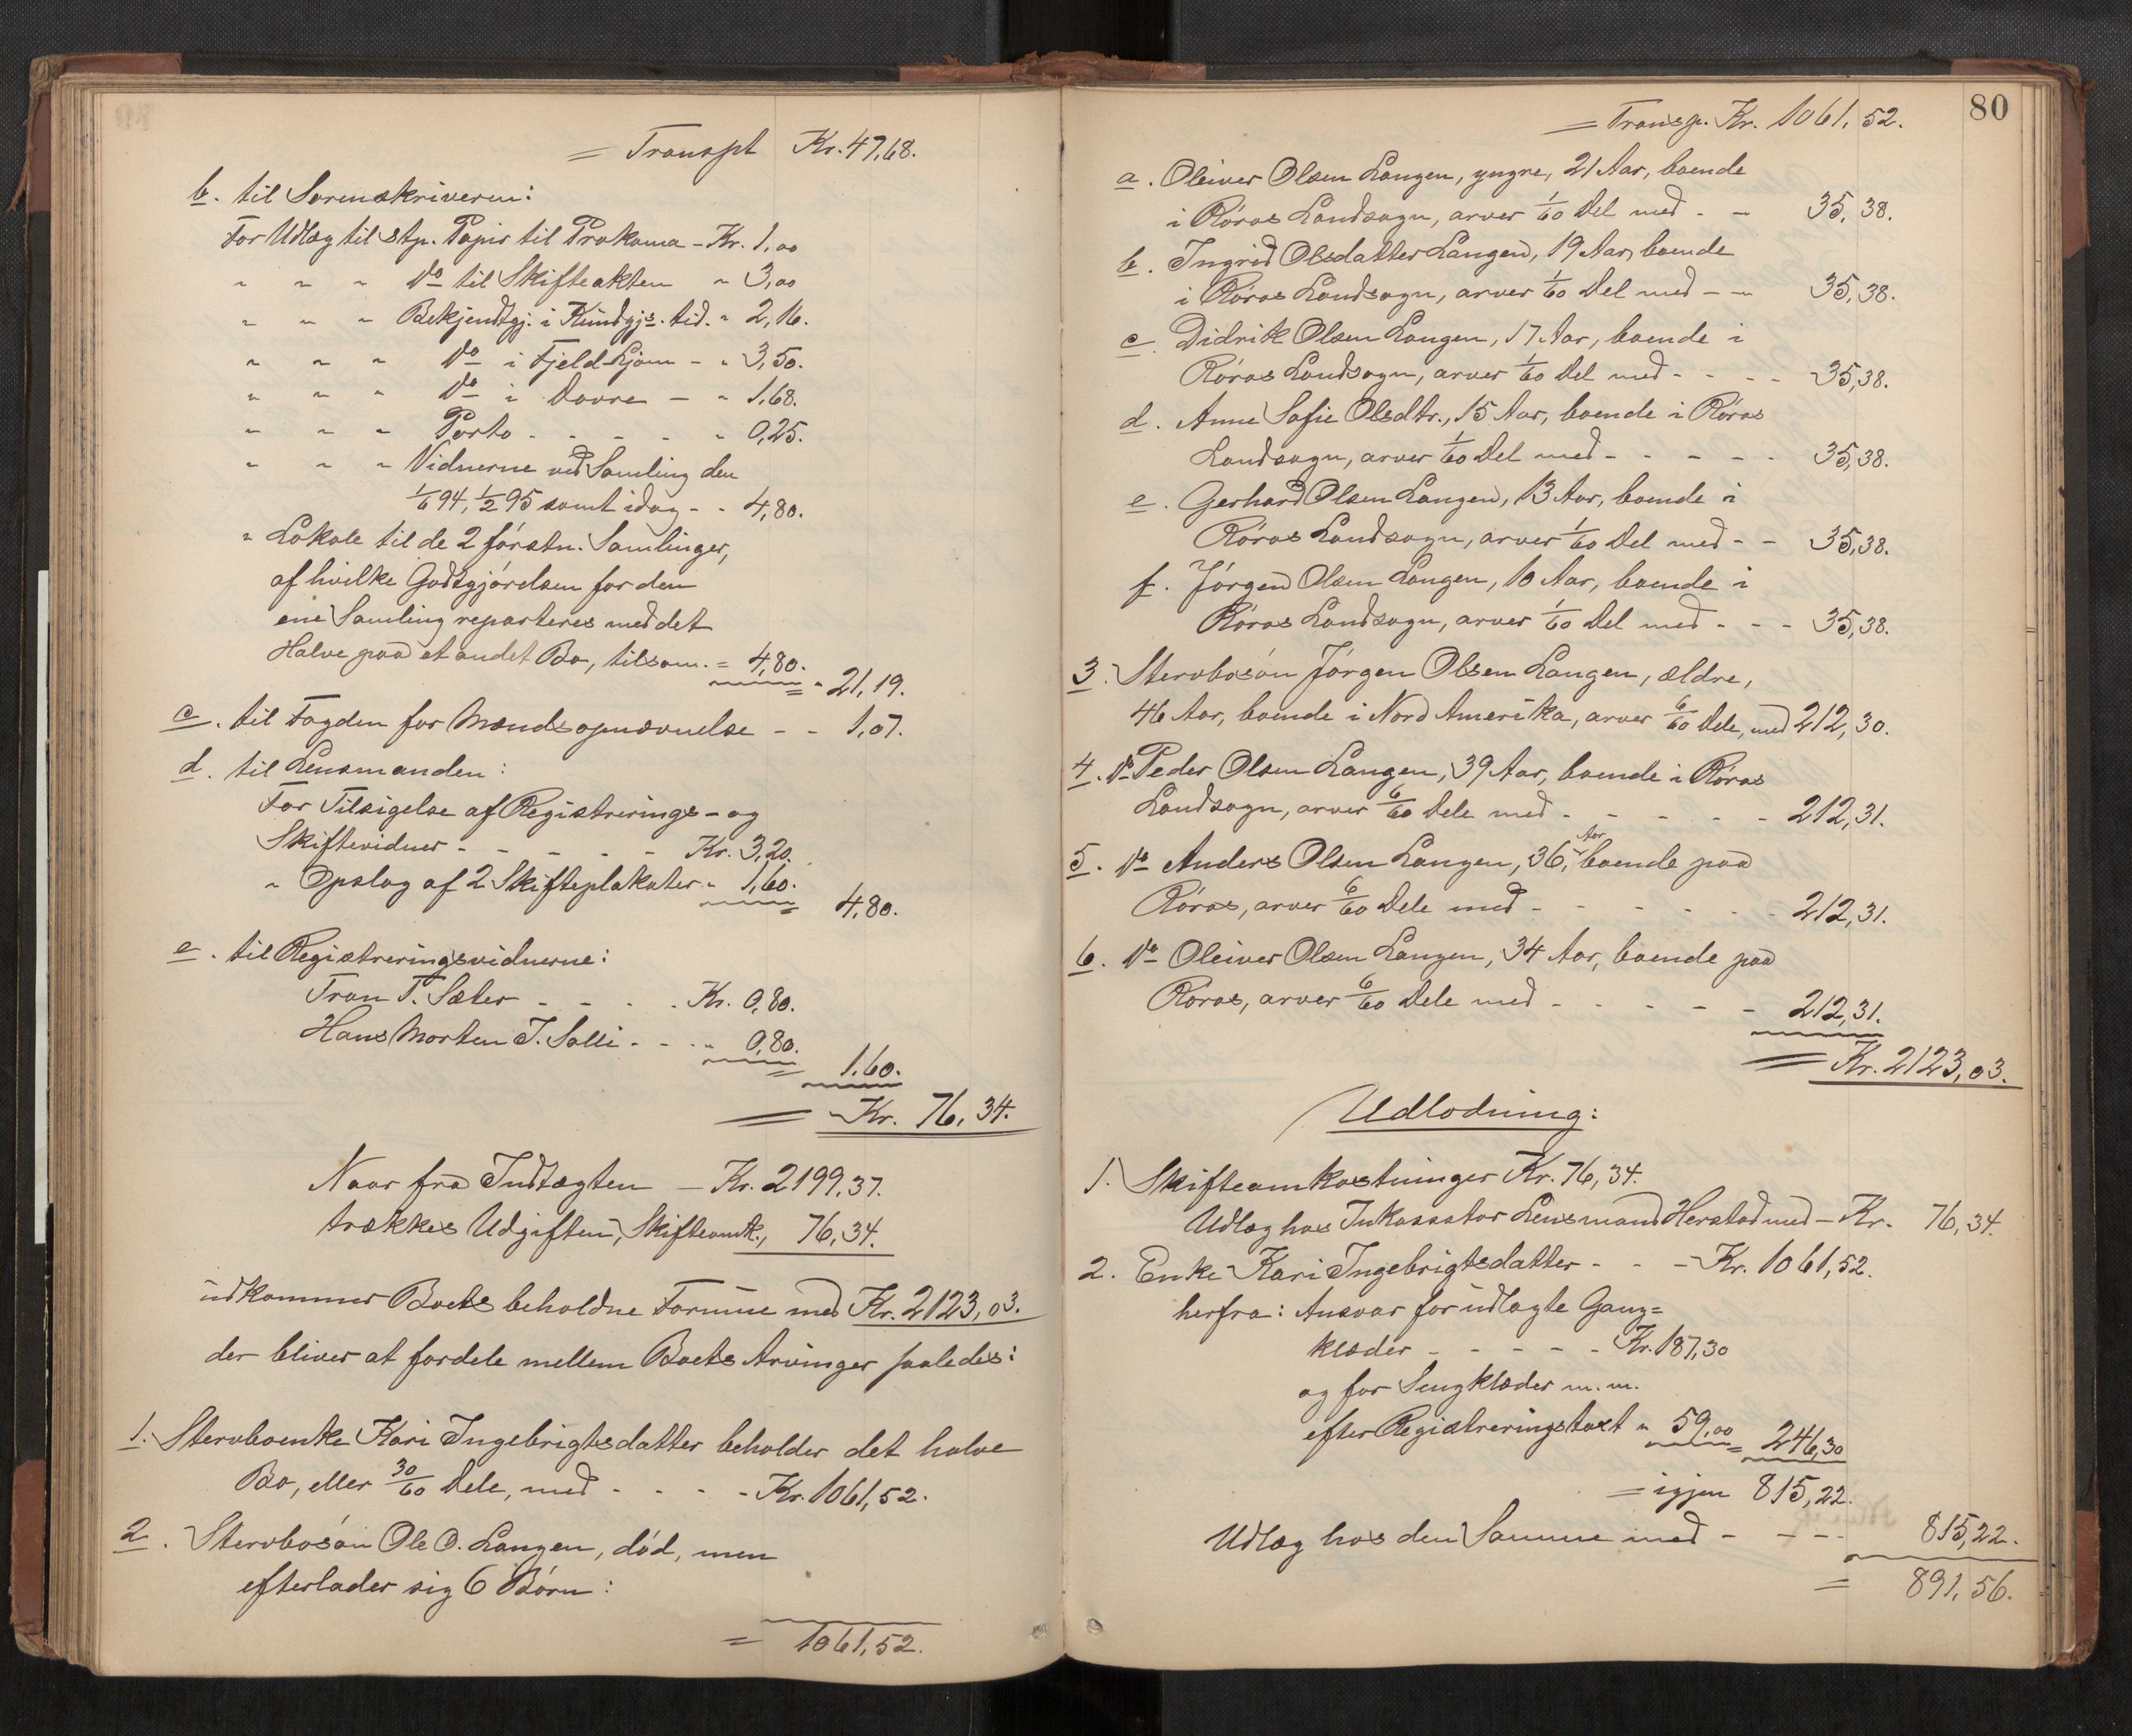 = Transpt Kr. 47,68.
b. til Sorenskriveren:
For Udlæg til stp. Papir til Prokama - Kr. 1,00
" " " do til Skifteakten " 3,00
" " " Bekjendtgj. i Kundgjs. tid. " 2,16.
" " " do i Fjeld-Ljom - " 3,50.
" " " do i Dovre - " 1,68.
" " " Porto - - - - " 0,25.
" " " Vidnerne ved Samling den
1/6 94, 1/2 95 samt idag - - 4,80.
" Lokale til de 2 förstn. Samlinger,
af hvilke Godtgjörelsen for den
ene Samling reparteres med det
Halve paa et andet Bo, tilsam. = 4,80. " 21,19.
c. til Fogden for Mændsopnævnelse - - 1,07.
d. til Lensmanden:
For Tilsigelse af Registrerings- og
Skiftevidner - - - - - Kr. 3,20.
" Opslag af 2 Skifteplakater " 1,60. 4,80.
e. til Registreringsvidnerne:
Tron T. Sæter - - - - Kr. 0,80.
Hans Morten J. Galli - - - " 0,80. 1,60.
= Kr. 76,34.
Naar fra Indtægten - Kr. 2199,37.
trækkes Udgiften, Skifteomk., 76,34.
udkommer Boets beholdne Formue med Kr. 2123,03.
der bliver at fordele mellem Boets Arvinger saaledes:
1. Stervboenke Kari Ingebrigtsdatter beholder det halve
Bo, eller 30/60 Dele, med - - - - Kr. 1061,52.
2. Stervbosön Ole O. Langen, död, men
efterlader sig 6 Börn:
= 1061,52.
80
= Transp. Kr. 1061,52.
a. Oleiver Olsen Langen, yngre, 21 Aar, boende
i Röros Landsogn, arver 1/60 Del med - - 35,38.
b. Ingrid Olsdatter Langen, 19 Aar, boende
i Röros Landsogn, arver 1/60 Del med - - 35,38.
c. Didrik Olsen Langen, 17 Aar, boende i
Röros Landsogn, arver 1/60 Del med - - - - 35,38.
d. Anne Sofie Olsdtr., 15 Aar, boende i Röros
Landsogn, arver 1/60 Del med - - - - - 35,38.
e. Gerhard Olsen Langen, 13 Aar, boende i
Röros Landsogn, arver 1/60 Del med - - 35,38.
f. Jörgen Olsen Langen, 10 Aar, boende i
Röros Landsogn, arver 1/60 Del med - - - 35,38.
3. Stervbosön Jörgen Olsen Langen, ældre,
46 Aar, boende i Nord Amerika, arver 6/60 Dele, med 212,30.
4. do Peder Olsen Langen, 39 Aar, boende i Röros
Landsogn, arver 6/60 Dele med - - - - - - 212,31.
5. do Anders Olsen Langen, 36 Aar, boende paa
Röros, arver 6/60 Dele med - - - - - - 212,31.
6. do Oleiver Olsen Langen, 34 Aar, boende paa
Röros, arver 6/60 Dele med - - - - - 212,31.
= Kr. 2123,03.
Udlodning:
1. Skifteomkostninger Kr. 76,34.
Udlæg hos Inkassator Lensmand Herstad med - Kr. 76,34.
2. Enke Kari Ingebrigtsdatter - - - Kr. 1061,52.
herfra: Ansvar for udlagte Gang=
klæder - - - - - Kr. 187,30
og for Sengklæder m. m.
efter Registreringstaxt " 59,00 = 246,30
= igjen 815,22.
Udlæg hos den Samme med - - - - 815,22.
= 891,56.